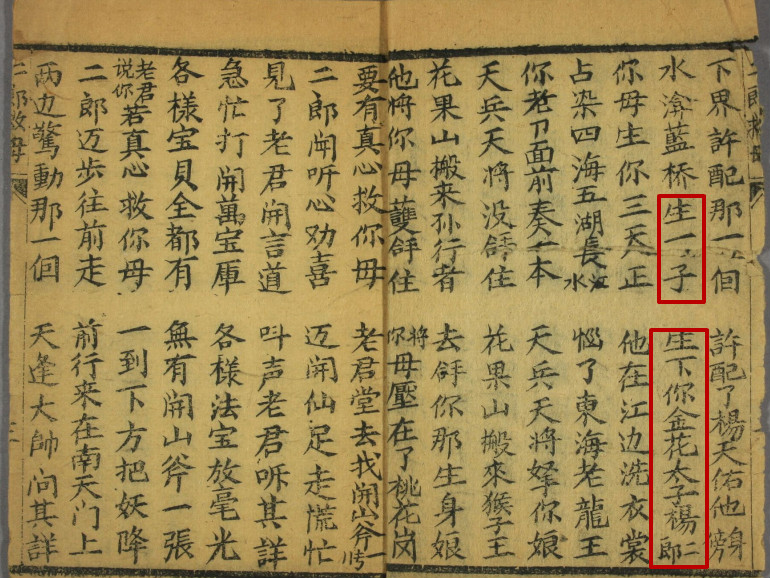 二郎救母
下界許配那一個 許配了楊天佑他身傍
水渰藍桥生一子 生下你金花太子楊二郎
你母生你三天正 他在江边洗衣裳
占染四海五湖長江水 惱了東海老龍王
你老 面前奏一本 天兵天将拏你娘
天兵天将没 住 花果山搬來猴子王
花果山搬来孙行者 去 你那生身娘
他将你母 住 將你母壓在了桃花岗
要有真心救你母 老君堂去找開山斧一
二郎闻听心劝喜 迈開仙足走慌忙
見了老君開言道 呌声老君听其詳
急忙打開萬宝厙 各様法宝放毫光
各樣宝貝全都有 無有開山斧一張
老君説你若真心救你母 一到下方把妖降
二郎迈步往前走 前行来在南天门上
两边驚動那一個 天逢大帥问其詳
二郎救母